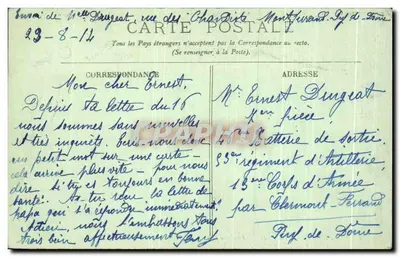 Envoi de Mme Durgeat, rue des Charités Montferrand Puy de Dôme
23-8-14
CARTE POSTALE
Tous les Pays étrangers n'acceptent pas la Correspondance au recto.
(Se renseigner à la Poste).
CORRESPONDANCE
Mon cher Ernest,
Depuis ta lettre du 16
nous sommes sans nouvelles
et très inquiets. Ecris-nous donc
un petit mot sur une carte -
cela arrive plus vite - pour nous
dire si tu es toujours en bonne
santé. As-tu reçu la lettre de
papa qui t'a répondu immédiatement?
Adieu, nous t'embrassons tous
très bien affectueusement
ADRESSE
Mr Ernest Durgeat
pièce
Batterie de sortie
régiment d'Artillerie
13eme Corps d'Armée
par Clermont-Ferrand
Puy-de-Dôme